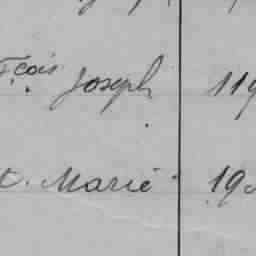 Fçois Joseph 119
t. Marie 19